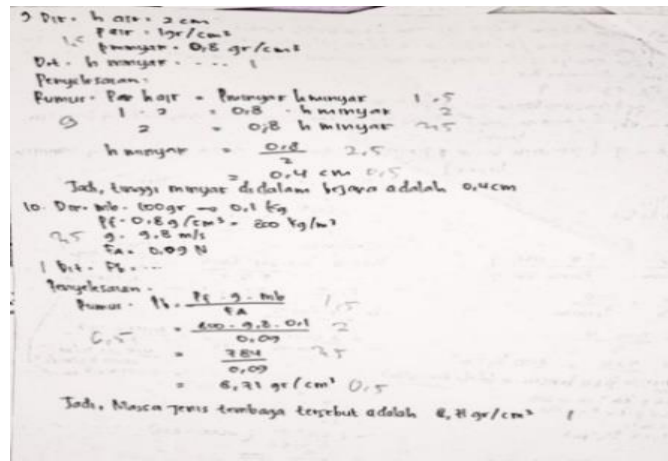 9 Dit. h air = 2 cm
1,5 ρ air = 1gr/cm³
ρ minyak = 0,8 gr/cm³
Dit. h minyak = .... 1
Penyelesaian :
Rumus = ρair h air = ρminyak h minyak 1,5
9 1 . 2 = 0,8 . h minyak 2
2 = 0,8 h minyak 2,5
h minyak = 0,8 / 2 2,5
= 0,4 cm 0,5
Jadi, tinggi minyak didalam bejana adalah 0,4cm
10. Dit. mb = 100gr → 0,1 kg
ρf = 0,8 g/cm³ = 800 kg/m³
2,5 g = 9,8 m/s
FA = 0,09 N
1 Dit = ρb....
Penyelesaian =
Rumus = ρb = ρf . g . mb / FA 1,5
6,5 = 800 . 9,8 . 0,1 / 0,09 2
= 784 / 0,09 2,5
= 8,71 gr/cm³ 0,5
Jadi, Massa jenis tembaga tersebut adalah 8,71 gr/cm³ 1